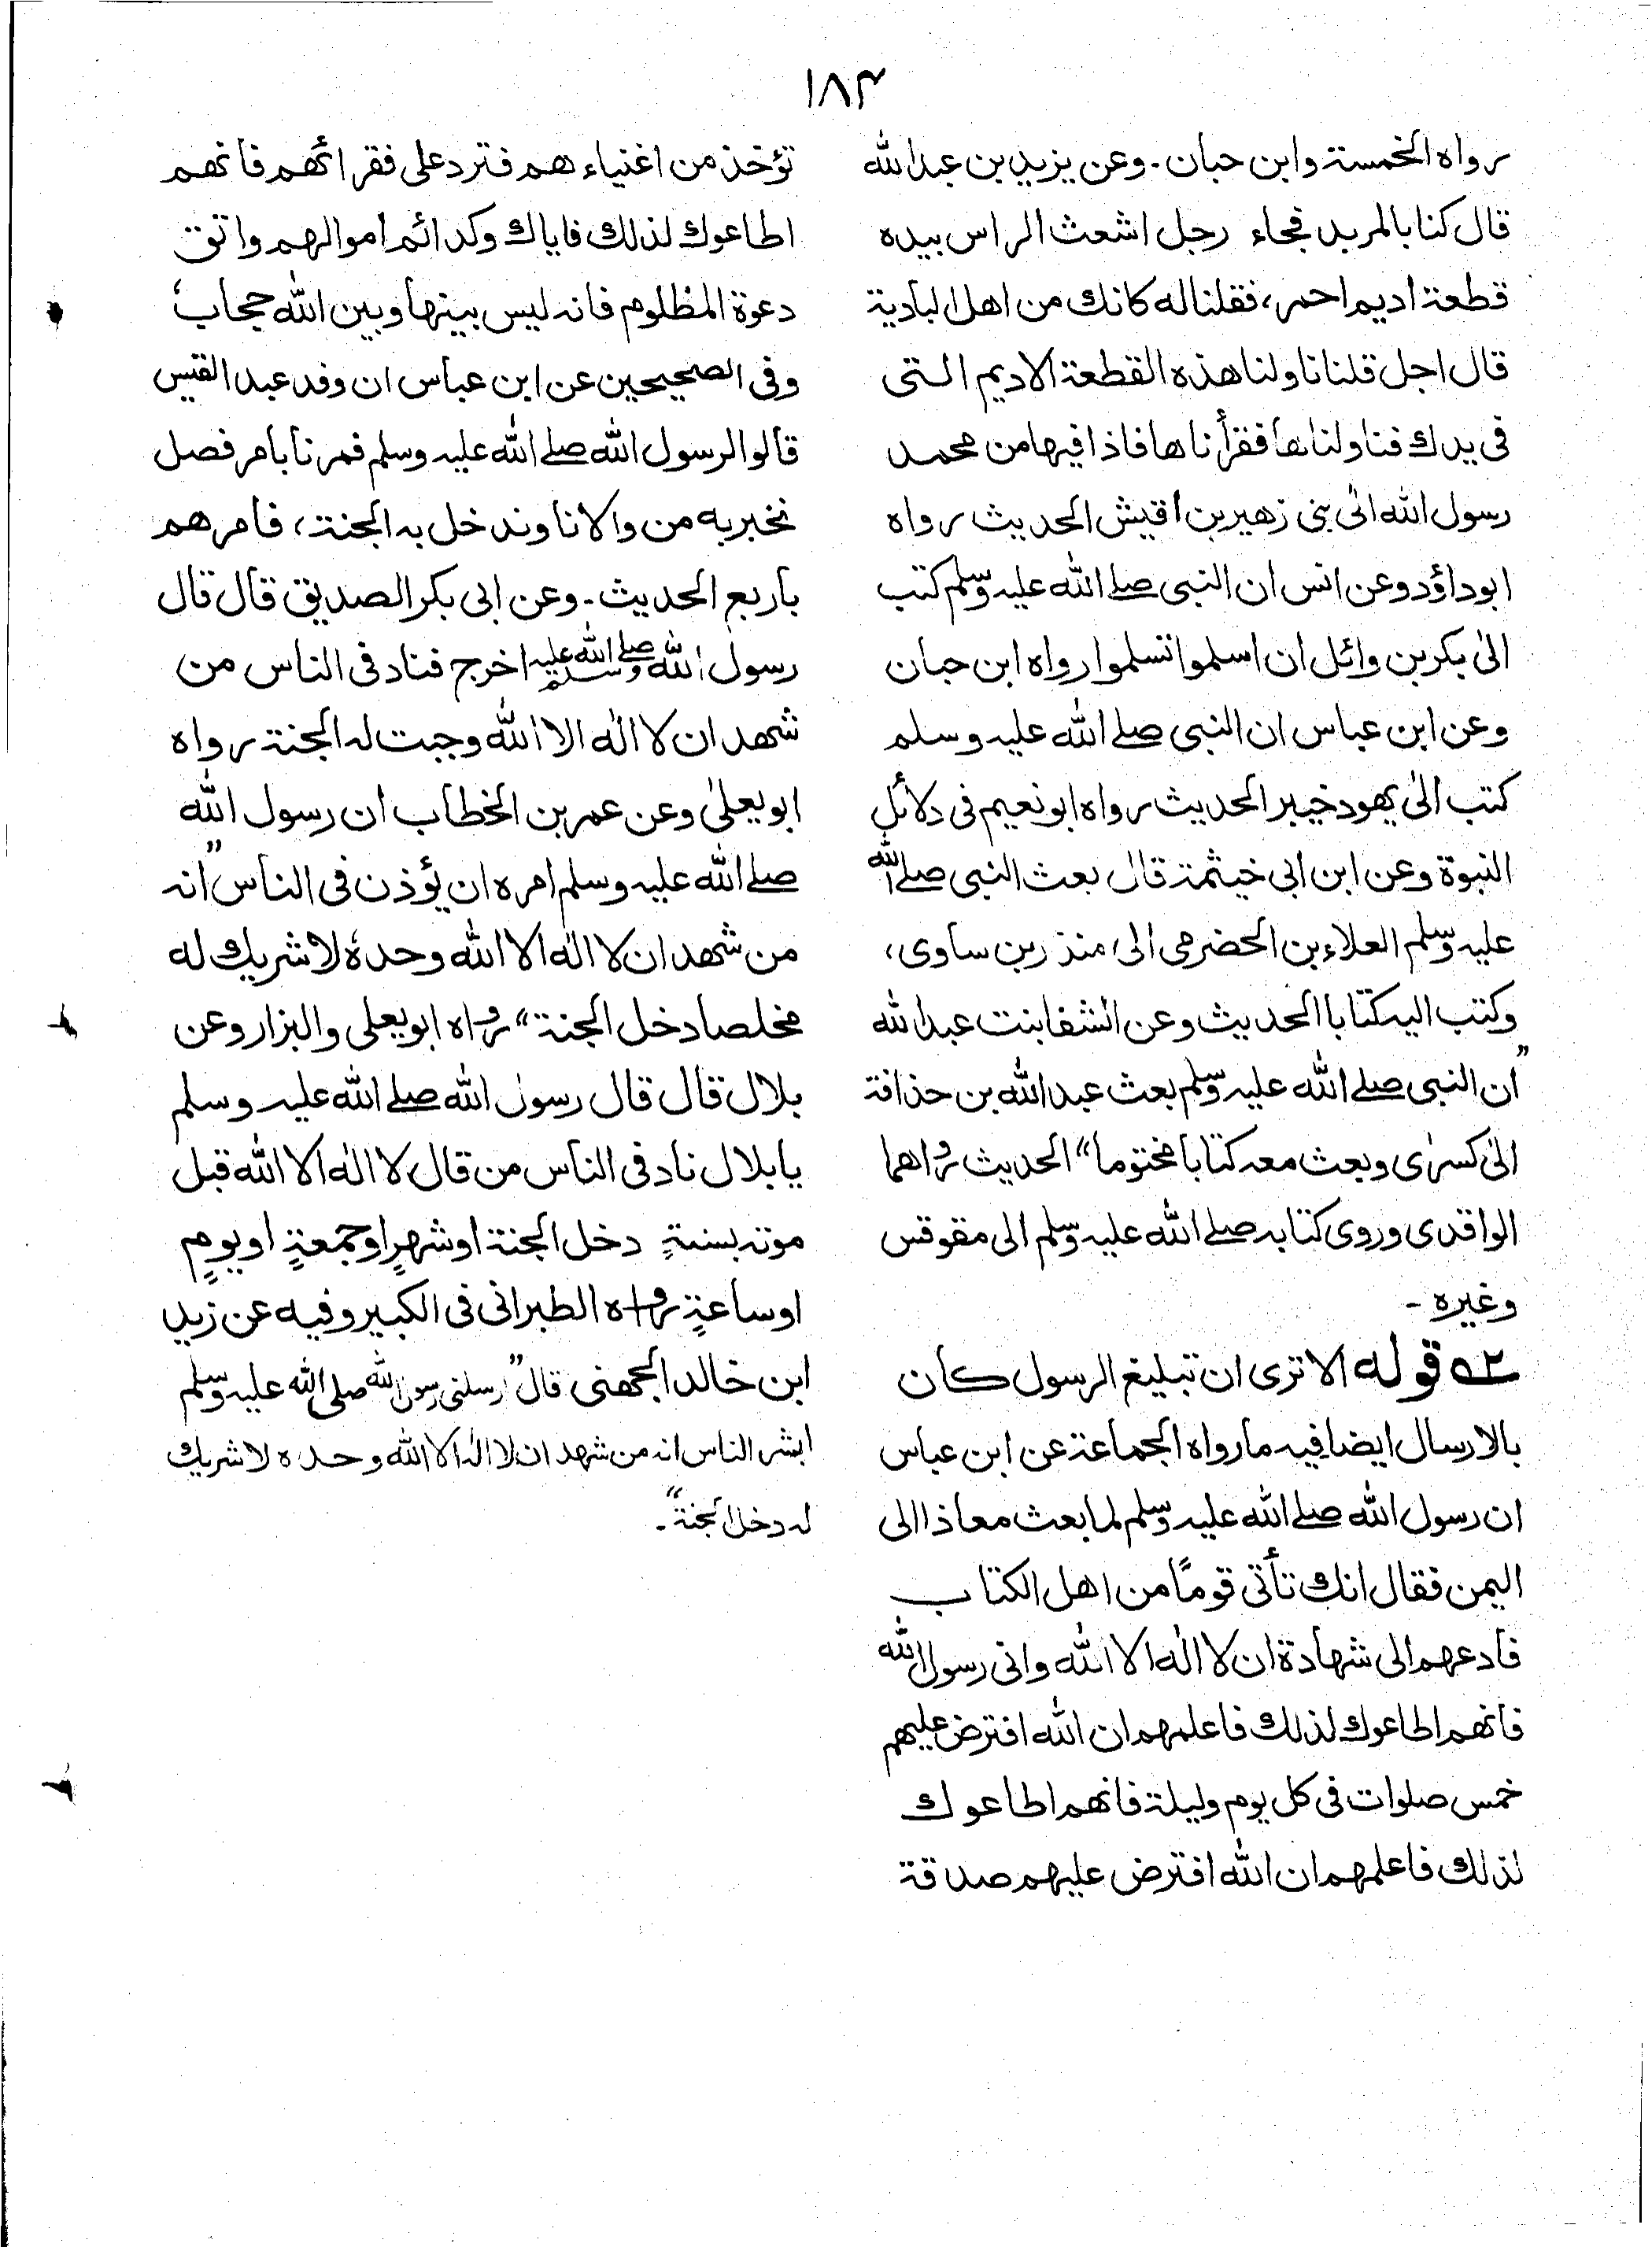 ۱۸۳
رواه الخمسة وابن حبان۔ وعن يزيد بن عبدالله
قال كنا بالمربد فجاء رجل اشعث الراس بيده
قطعة اديم احمر، فقلنا له كانك من اهل البادية
قال اجل قلنا ناولنا هذه القطعة الاديم التى
فى يدك فناولناها فقرأناها فاذا فيها من محمد
رسول الله الى بنى زهير بن اقيش الحديث رواه
ابوداؤد وعن انس ان النبى صلے الله عليه وسلم كتب
الىٰ بكر بن وائل ان اسلموا تسلموا رواه ابن حبان
وعن ابن عباس ان النبى صلے الله عليه وسلم
كتب الىٰ يهود خيبر الحديث رواه ابو نعيم فى دلائل
النبوة وعن ابن ابى خيثمة قال بعث النبى صلے الله
عليه وسلم العلاء بن الحضرمى الى منذر بن ساوى،
وكتب اليه كتابا الحديث وعن الشفا بنت عبدالله
”ان النبى صلے الله عليه وسلم بعث عبدالله بن حذافة
الىٰ كسرٰى وبعث معه كتابا مختوما“ الحديث رواهما
الواقدى وروى كتابه صلے الله عليه وسلم الى مقوقس
وغيره ۔
۵۲ قوله الا ترى ان تبليغ الرسول كان
بالارسال ايضا فيه ما رواه الجماعة عن ابن عباس
ان رسول الله صلے الله عليه وسلم لما بعث معاذا الى
اليمن فقال انك تأتى قومًا من اهل الكتاب
فادعهم الى شهادة ان لا الٰه الا الله وانى رسول الله
فانهم اطاعوك لذلك فاعلمهم ان الله افترض عليهم
خمس صلوات فى كل يوم وليلة فانهم اطاعوك
لذلك فاعلمهم ان الله افترض عليهم صدقة
تؤخذ من اغنياءهم فترد على فقرائهم فانهم
اطاعوك لذلك فاياك وكدائم اموالهم واتق
دعوة المظلوم فانه ليس بينها وبين الله حجابٌ
وفى الصحيحين عن ابن عباس ان وفد عبد القيس
قالوا لرسول الله صلے الله عليه وسلم فمرنا بامر فصل
نخبر به من والانا وندخل به الجنة، فامرهم
باربع الحديث۔ وعن ابى بكر الصديق قال قال
رسول الله صلے الله عليه وسلم اخرج فناد فى الناس من
شهد ان لا الٰه الا الله وجبت له الجنة رواه
ابو يعلىٰ وعن عمر بن الخطاب ان رسول الله
صلے الله عليه وسلم امره ان يؤذن فى الناس ”انه
من شهد ان لا الٰه الا الله وحدهٗ لا شريك له
مخلصا دخل الجنة“ رواه ابو يعلى والبزار وعن
بلال قال قال رسول الله صلے الله عليه وسلم
يا بلال ناد فى الناس من قال لا الٰه الا الله قبل
موته بسنةٍ دخل الجنة او شهرٍ او جمعةٍ او يومٍ
او ساعةٍ رواه الطبرانى فى الكبير وفيه عن زيد
ابن خالد الجهنى قال ”ارسلنى رسول الله صلى الله عليه وسلم
ابشر الناس انه من شهد ان لا اله الا الله وحده لا شريك
له دخل الجنة“۔